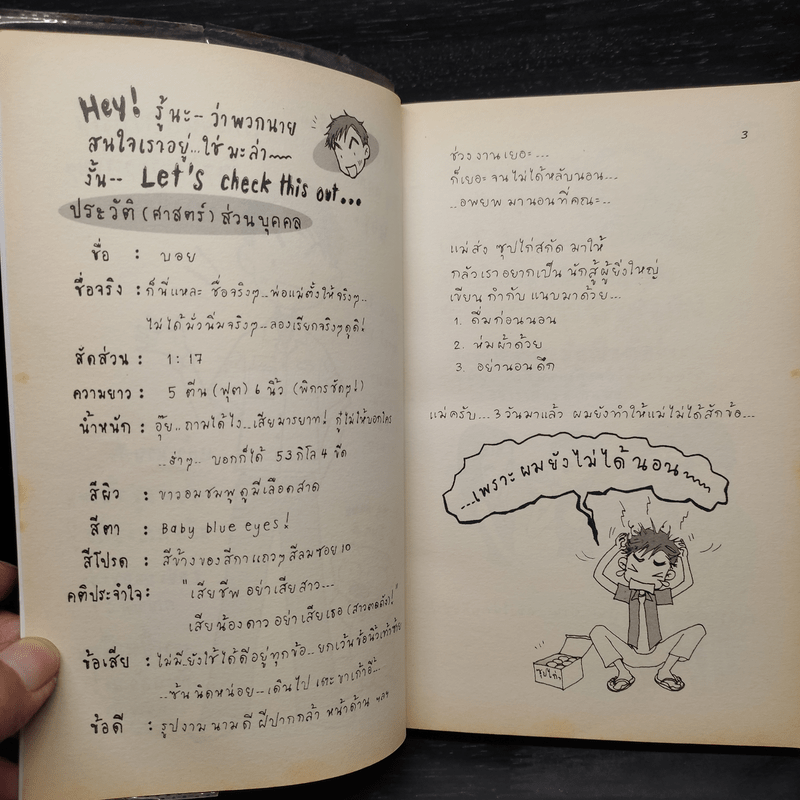 Hey! รู้นะ-- ว่าพวกนาย
สนใจเราอยู่...ใช่มะล่า~~
งั้น-- Let's check this out...
ประวัติ (ศาสตร์) ส่วนบุคคล
ชื่อ : บอย
ชื่อจริง : ก็นี่แหละ ชื่อจริงๆ...พ่อแม่ตั้งให้จริงๆ...
ไม่ได้มั่วนิ่มจริงๆ...ลองเรียกจริงๆดูดิ!
สัดส่วน : 1:17
ความยาว : 5 ตีน (ฟุต) 6 นิ้ว (พิการชัดๆ!)
น้ำหนัก : อุ๊ย..ถามได้ไง...เสียมารยาท! กู่ไม่ให้บอกใคร
...ล่าๆ... บอกก็ได้ 53 กิโล 4 ขีด
สีผิว : ขาวอมชมพู ดูมีเลือดสาด
สีตา : Baby blue eyes!
สีโปรด : สีข้างของสีกาแถวๆ สีลมซอย 10
คติประจำใจ: "เสียชีพ อย่าเสียสาว...
เสียน้องดาว อย่าเสียเธอ (สาวตาตั้ง)!"
ข้อเสีย : ไม่มี..ยังใช้ได้ดีอยู่ทุกข้อ...ยกเว้นข้อนิ้วเท้าซ้าย
...ซ้นนิดหน่อย--เดินไปเตะขาเก้าอี้...
ข้อดี : รูปงาม นามดี ฝีปากกล้า หน้าด้าน ฯลฯ
3
ช่วงงานเยอะ...
ก็เยอะจนไม่ได้หลับนอน...
..อพยพมานอนที่คณะ..
แม่ส่ง ซุปไก่สกัด มาให้
กลัวเราอยากเป็น นักสู้ผู้ยิ่งใหญ่
เขียน กำกับ แนบมาด้วย...
1. ดื่มก่อนนอน
2. ห่มผ้าด้วย
3. อย่านอนดึก
แม่ครับ...3 วันมาแล้ว ผมยังทำให้แม่ไม่ได้สักข้อ...
...เพราะผมยังไม่ได้นอน~~
ซุปไก่